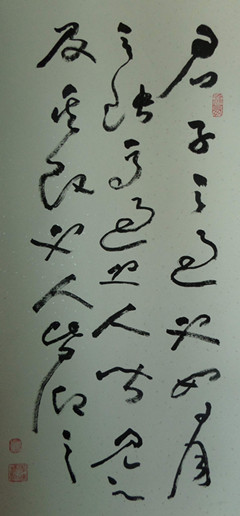 君子之過也如日月
之蝕焉過也人皆見之
及其改也人皆仰之